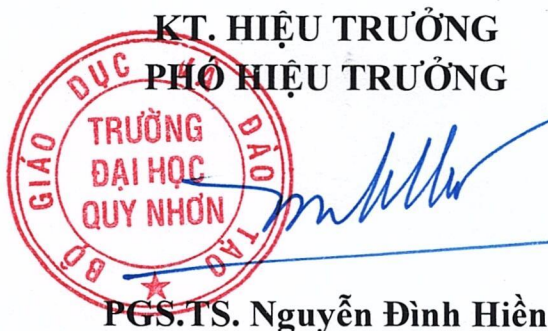 KT. HIỆU TRƯỞNG
PHÓ HIỆU TRƯỞNG
BỘ GIÁO DỤC VÀ ĐÀO TẠO
TRƯỜNG
ĐẠI HỌC
QUY NHƠN
PGS.TS. Nguyễn Đình Hiền